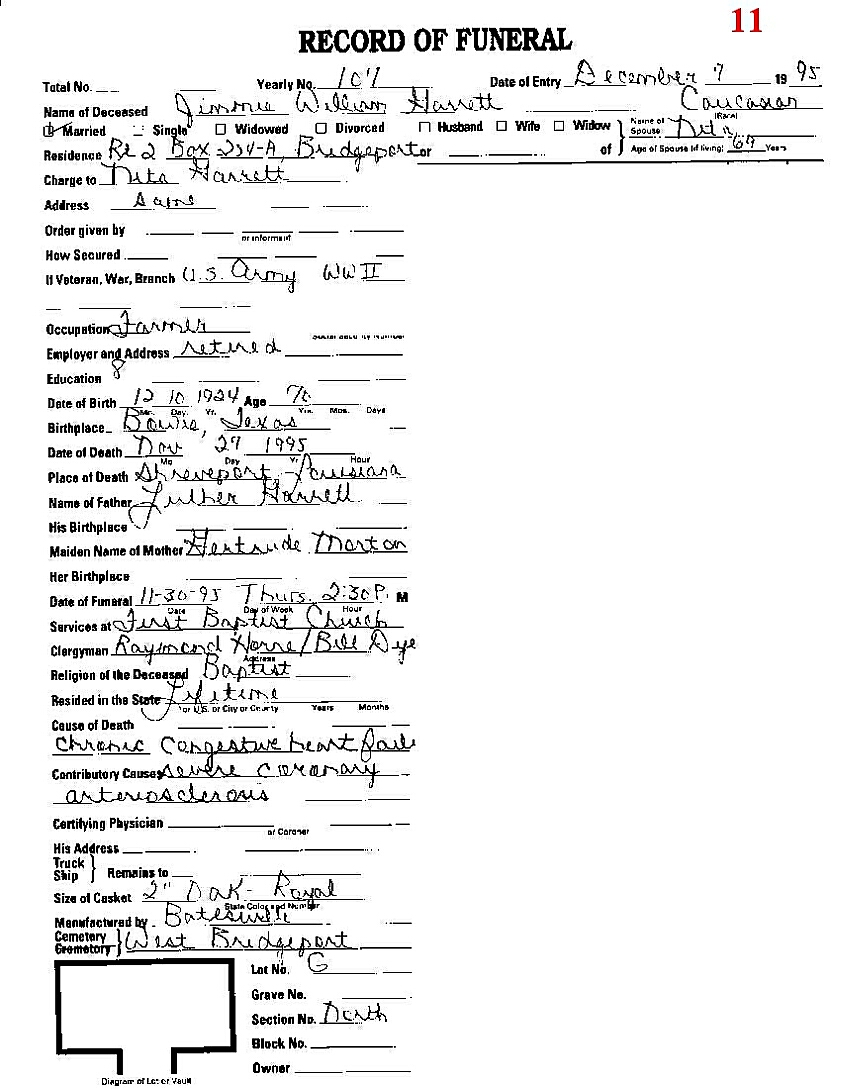 11
RECORD OF FUNERAL
Total No. Yearly No. 107 Date of Entry December 7 19 95
Name of Deceased Jimmie William Harrett Caucasian
(Race)
Married Single Widowed Divorced Husband Wife Widow Name of Spouse Nita
Residence Rt 2 Box 234-A, Bridgeport or of Age of Spouse (if living) 69 Years
Charge to Nita Harrett
Address Same
Order given by
or informant
How Secured
If Veteran, War, Branch U.S. Army WW II
Occupation Farmer
Social Security Number
Employer and Address retired
Education 8
Date of Birth 12 10 1924 Age 70
Mo. Day. Yr. Yrs. Mos. Days
Birthplace Bowie, Texas
Date of Death Nov 27 1995
Mo Day Yr Hour
Place of Death Shreveport, Louisiana
Name of Father Luther Harrett
His Birthplace
Maiden Name of Mother Gertrude Morton
Her Birthplace
Date of Funeral 11-30-95 Thurs. 2:30 P. M
Date Day of Week Hour
Services at First Baptist Church
Clergyman Raymond Horne/Bill Dye
Address
Religion of the Deceased Baptist
Resided in the State Lifetime
or U.S. or City or County Years Months
Cause of Death
Chronic Congestive heart
Contributory Causes severe coronary
arteriosclerosis
Certifying Physician
or Coroner
His Address
Truck
Ship } Remains to
Size of Casket 2" Oak - Royal
State Color and Number
Manufactured by Batesville
Cemetery
Crematory } West Bridgeport
Lot No. G
Grave No.
Section No. North
Block No.
Owner
Diagram of Lot or Vault